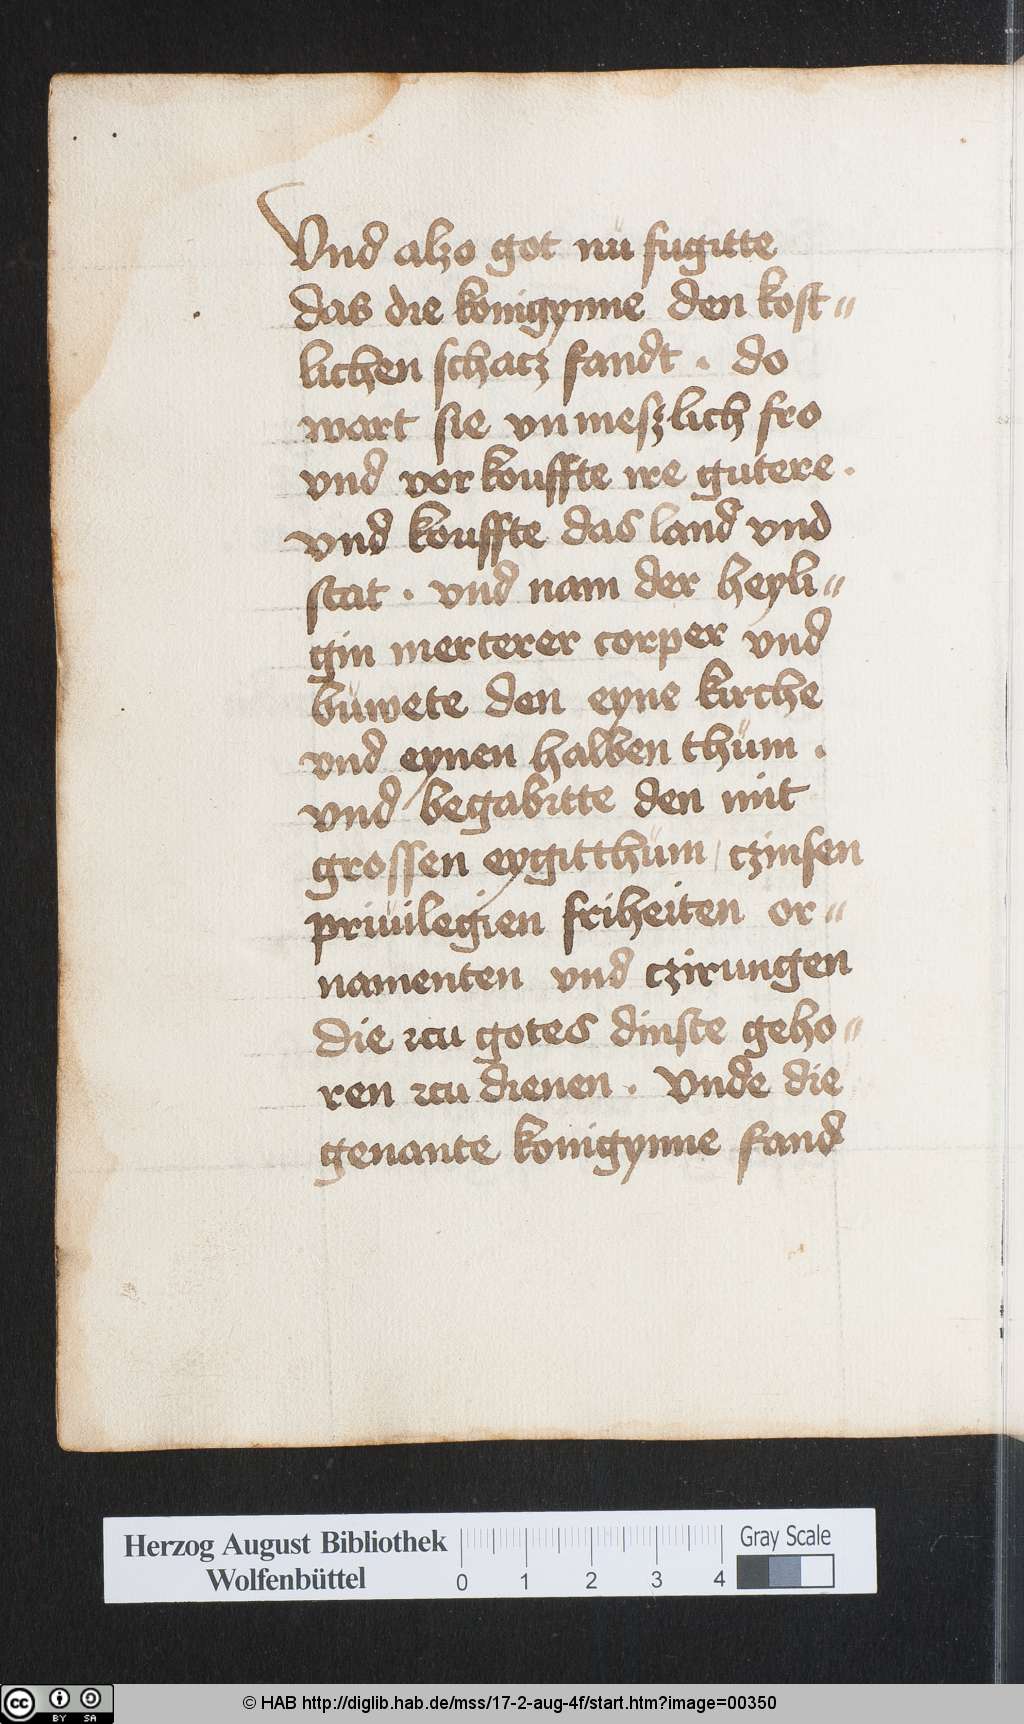 Vnd alzo got nü fugitte
das die konigynne den kost〃
lichen schacz fandt . do
wart sie vnmeszlich fro
vnd vorkouffte ire gutere .
vnd kouffte das land vnd
stat . vnd nam der heyli〃
gin merterer corper vnd
büwete den eyne kirche
vnd eynen halben thüm .
vnd begabitte den mit
grossen eygitthüm / czinsen
priuilegien friheiten or〃
namenten vnd czirungen
die zcu gotes dinste geho〃
ren zcu dienen . Vnde die
genante konigynne fand
Herzog August Bibliothek
Wolfenbüttel
0 1 2 3 4
Gray Scale
cc BY SA
© HAB http://diglib.hab.de/mss/17-2-aug-4f/start.htm?image=00350